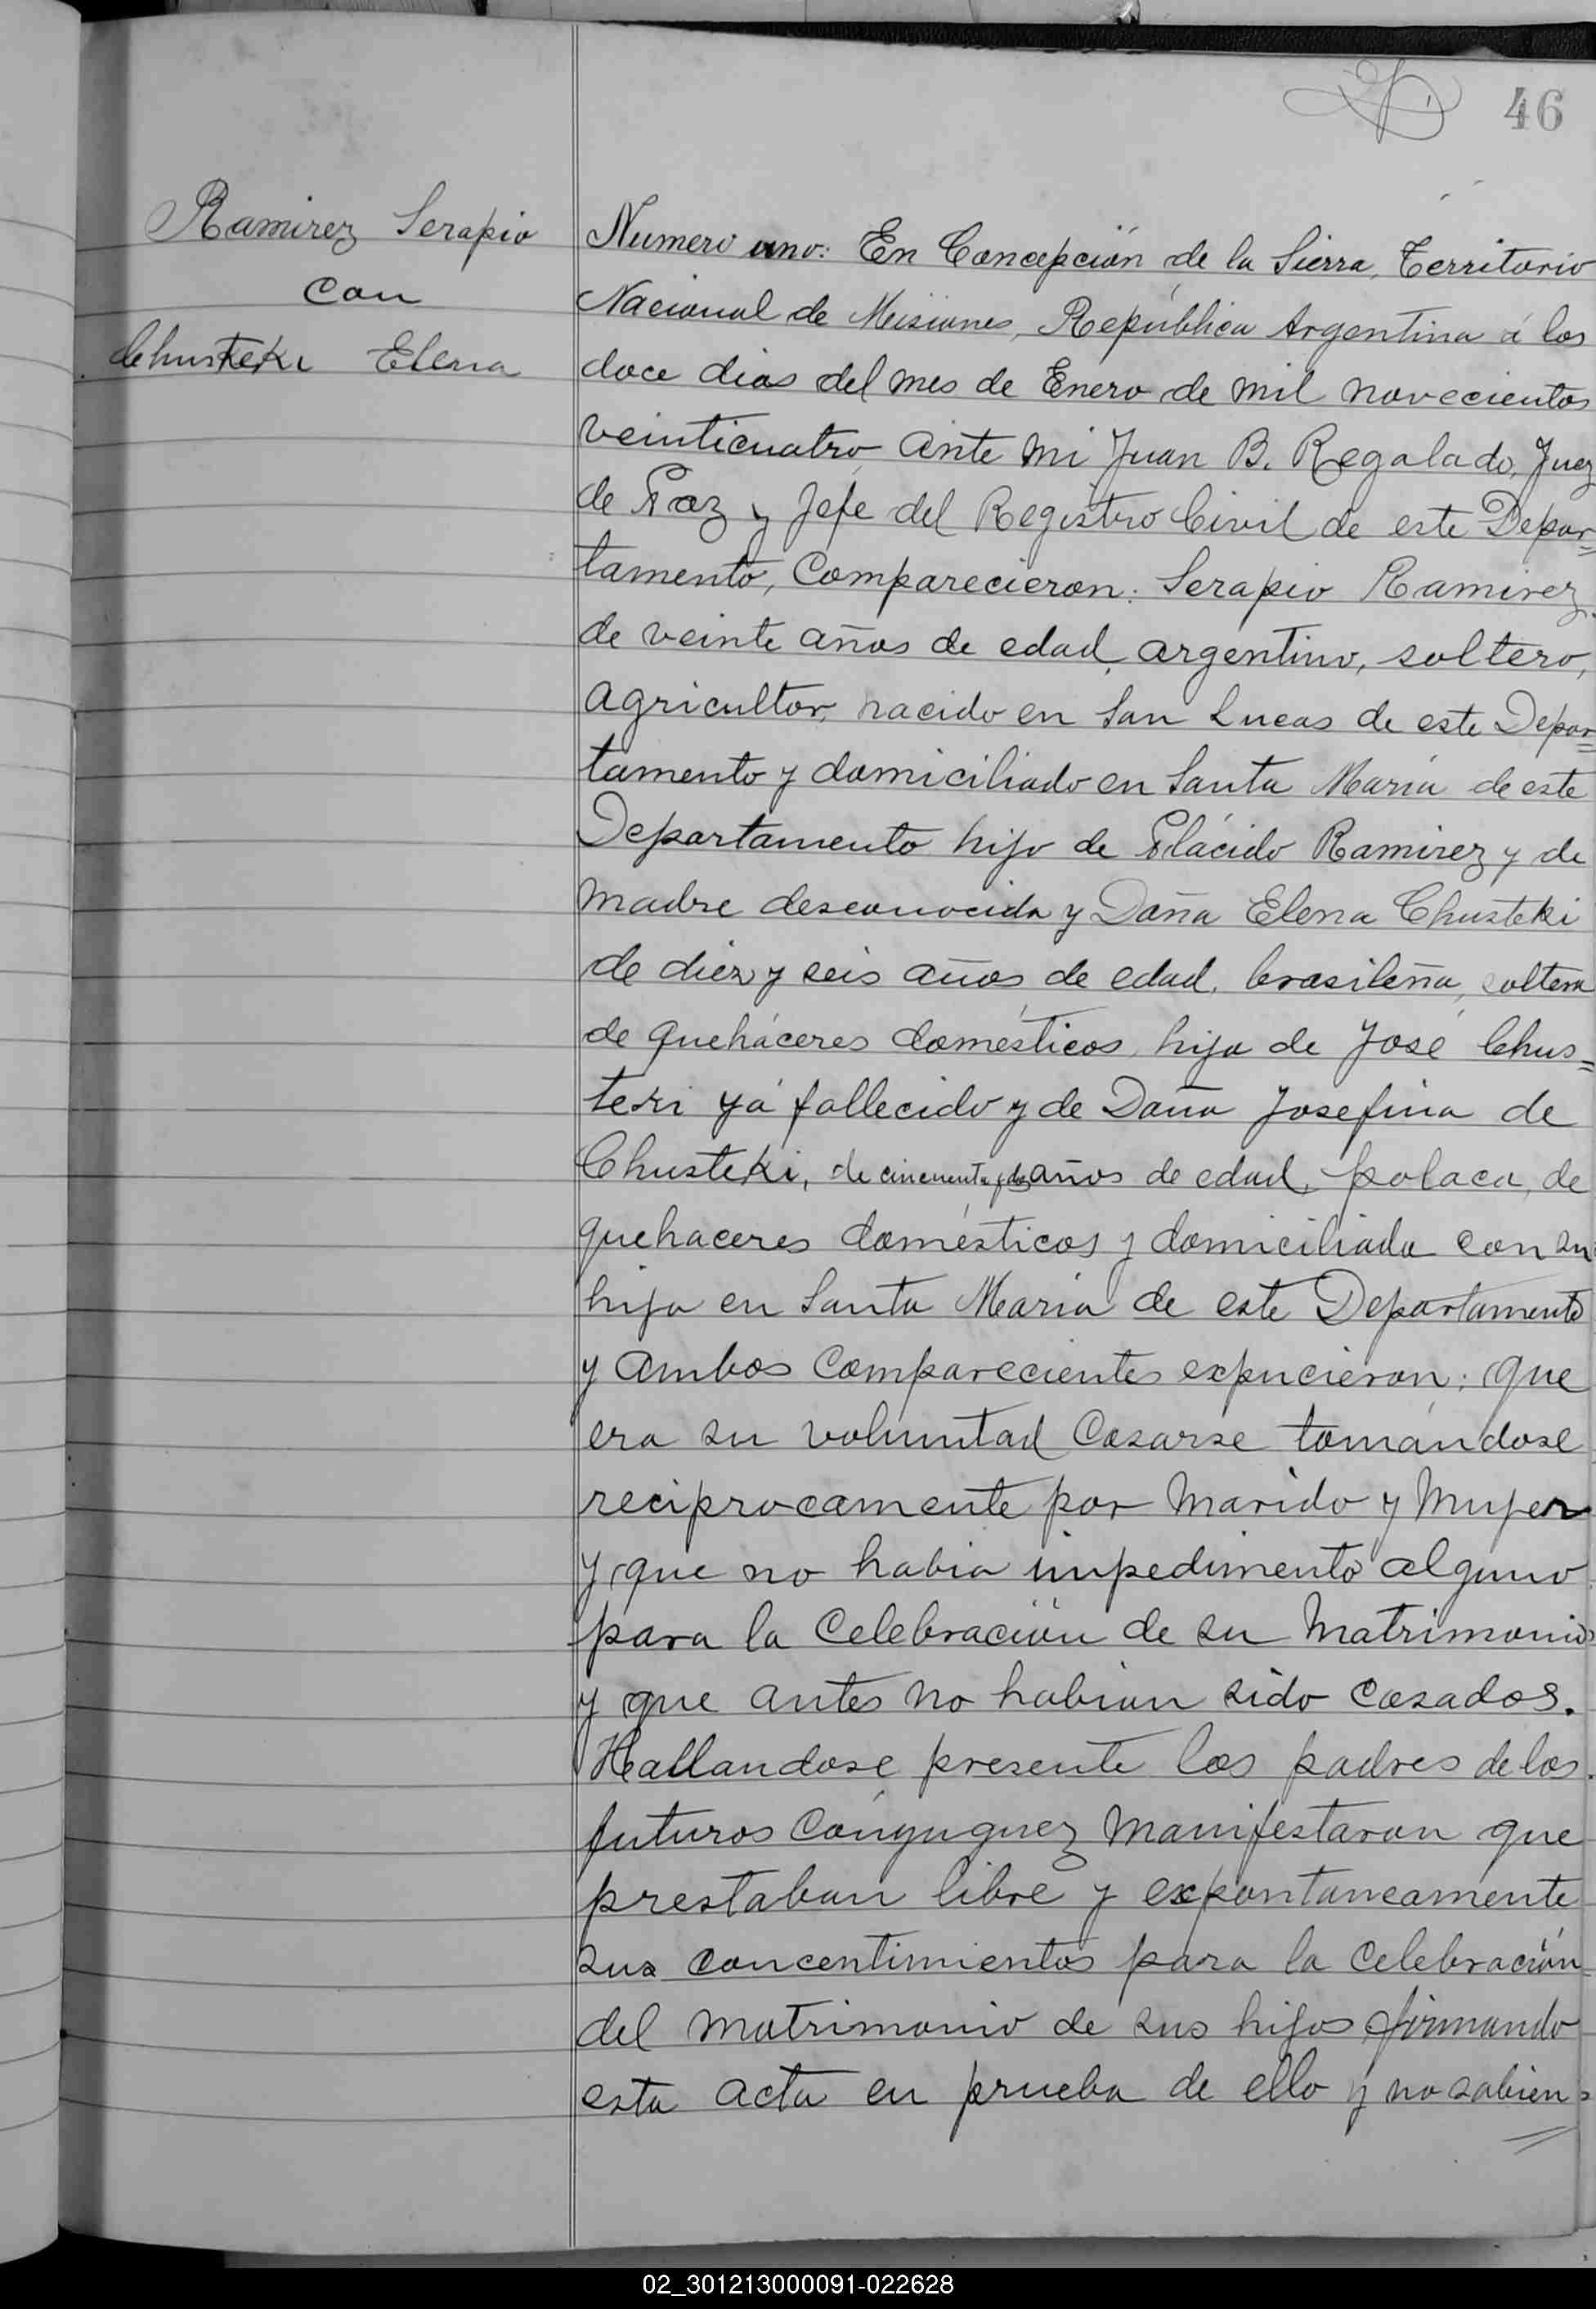 46
Ramirez Serapio
con
Chusteki Elena
Numero uno: En Concepción de la Sierra, Territorio
Nacional de Misiones, República Argentina á los
doce dias del mes de Enero de mil novecientos
veinticuatro, ante mi Juan B. Regalado, Juez
de Paz y Jefe del Registro Civil de este Depar=
tamento, Comparecieron: Serapio Ramirez,
de veinte años de edad, argentino, soltero,
agricultor, nacido en San Lucas de este Depar=
tamento y domiciliado en Santa María de este
Departamento hijo de Plácido Ramirez y de
madre desconocida y Doña Elena Chusteki
de diez y seis años de edad, brasileña, soltera
de queháceres domésticos, hija de José Chus=
teki yá fallecido y de Doña Josefina de
Chusteki, de cincuenta y dos años de edad, polaca, de
quehaceres domésticos y domiciliada con su
hija en Santa María de este Departamento
y ambos comparecientes expucieron: que
era su voluntad casarse tomándose
reciprocamente por marido y mujer
y que no habia impedimento alguno
para la celebración de su matrimonio
y que antes no habian sido casados.
Hallandose presente los padres de los
futuros cónyuguez manifestaron que
prestaban libre y expontaneamente
sus concentimientos para la celebración
del matrimonio de sus hijos firmando
esta acta en prueba de ello y no sabien=
02_301213000091-022628